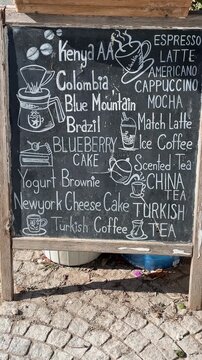 Kenya AA
Colombia
Blue Mountain
Brazil
BLUEBERRY
CAKE
Yogurt Brownie
Newyork Cheese Cake
Turkish Coffee
ESPRESSO
LATTE
AMERICANO
CAPPUCCINO
MOCHA
Match Latte
Ice Coffee
Scented Tea
CHINA
TEA
TURKISH
TEA